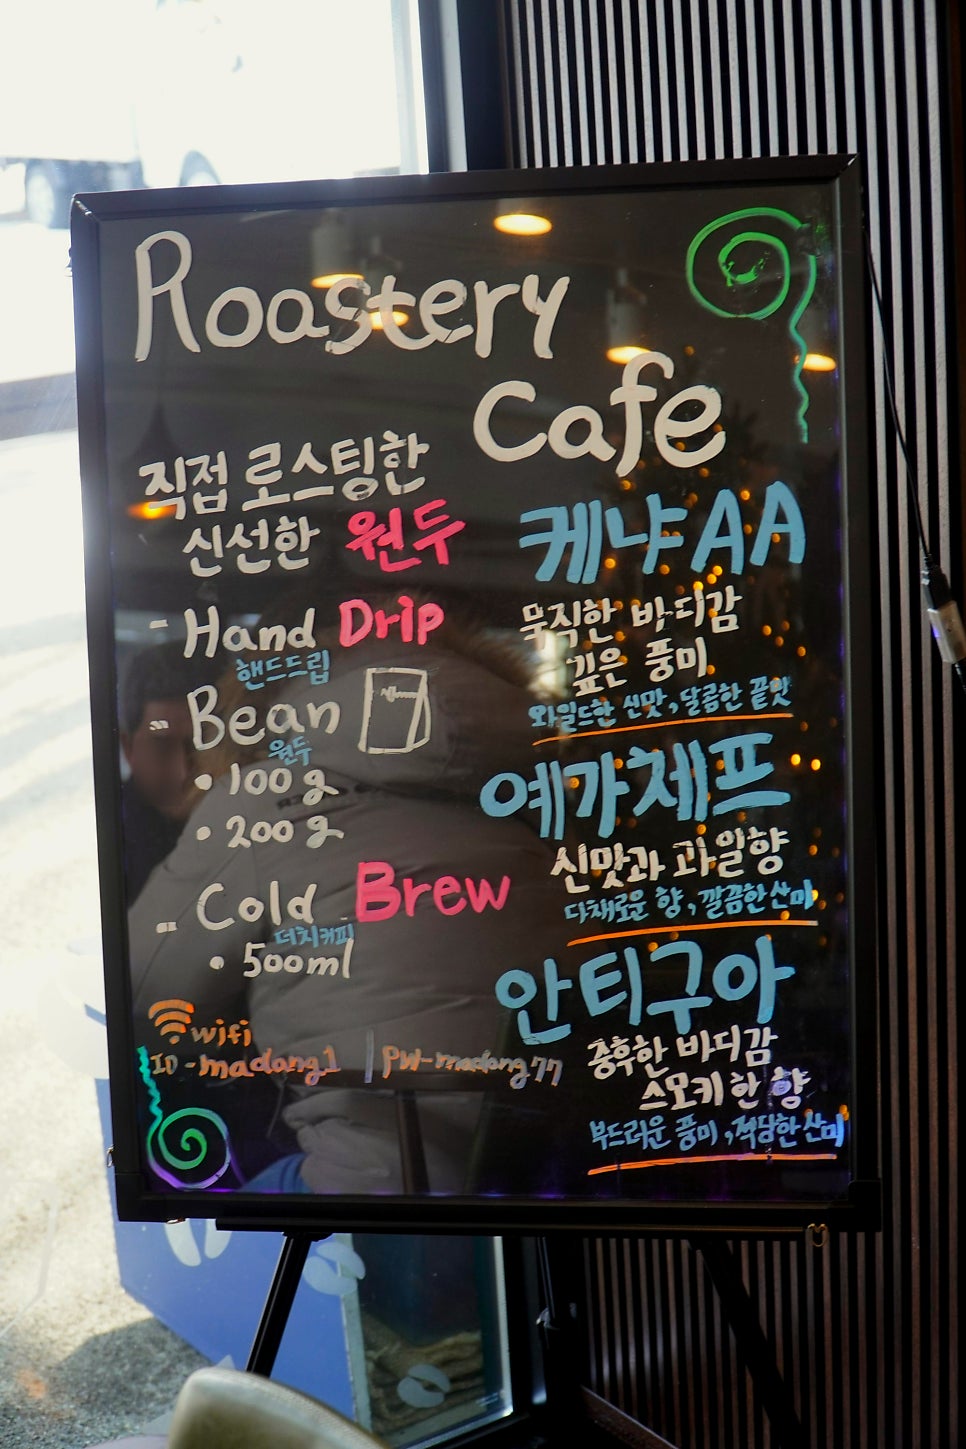 Roastery
Cafe
직접 로스팅한
신선한 원두
- Hand Drip
핸드드립
- Bean
원두
• 100g
• 200g
- Cold Brew
더치커피
• 500ml
wifi
ID - madang1 | PW - madang77
케냐 AA
묵직한 바디감
깊은 풍미
와일드한 신맛, 달콤한 끝맛
예가체프
신맛과 과일향
다채로운 향, 깔끔한 산미
안티구아
중후한 바디감
스모키한 향
부드러운 풍미, 적당한 산미